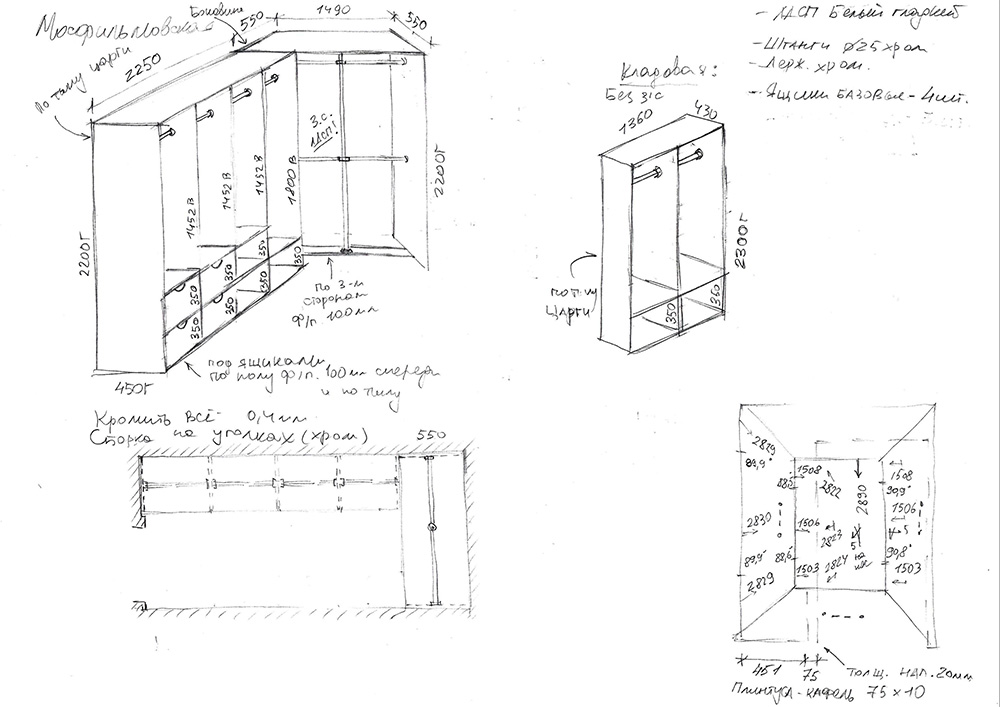 Мосфильмовская
Боковина
550
1490
550
2250
По типу царги
З.С.
ЛДСП!
1452 В
1452 В
1452 В
1800 В
2200Г
2200Г
350
350
350
350
350
350
350
350
по 3-м
сторонам
Ф/п. 100мм
450Г
под ящиками
по полу ф/п. 100мм спереди
и по тылу
Кромить всё 0,4мм
Сборка на уголках (хром)
550
- ЛДСП Белый гладкий
- Штанги Ø25 хром
- Держ. хром.
- Ящики базовые - 4шт.
Кладовая:
Без з/с
1360
430
2300Г
по типу
царги
350
350
2829
89,9°
1508
2822
2890
1508
90,9°
1506
2830
1506
2823
5
5
89,9°
88,6°
2824
90,8°
1503
1503
2829
451
75
толщ. нал. 20мм
Плинтуса-кафель 75x10